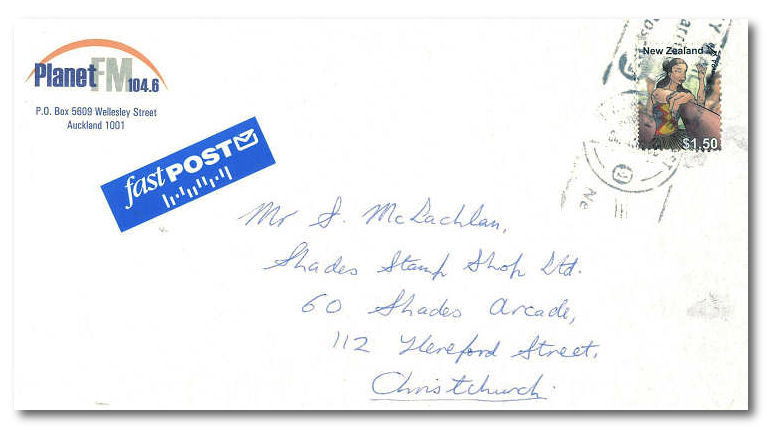 Planet FM 104.6
P.O. Box 5609 Wellesley Street
Auckland 1001
New Zealand
$1.50
fast POST
Mr I. McLachlan,
Shades Stamp Shop Ltd.
60 Shades Arcade,
112 Hereford Street,
Christchurch.